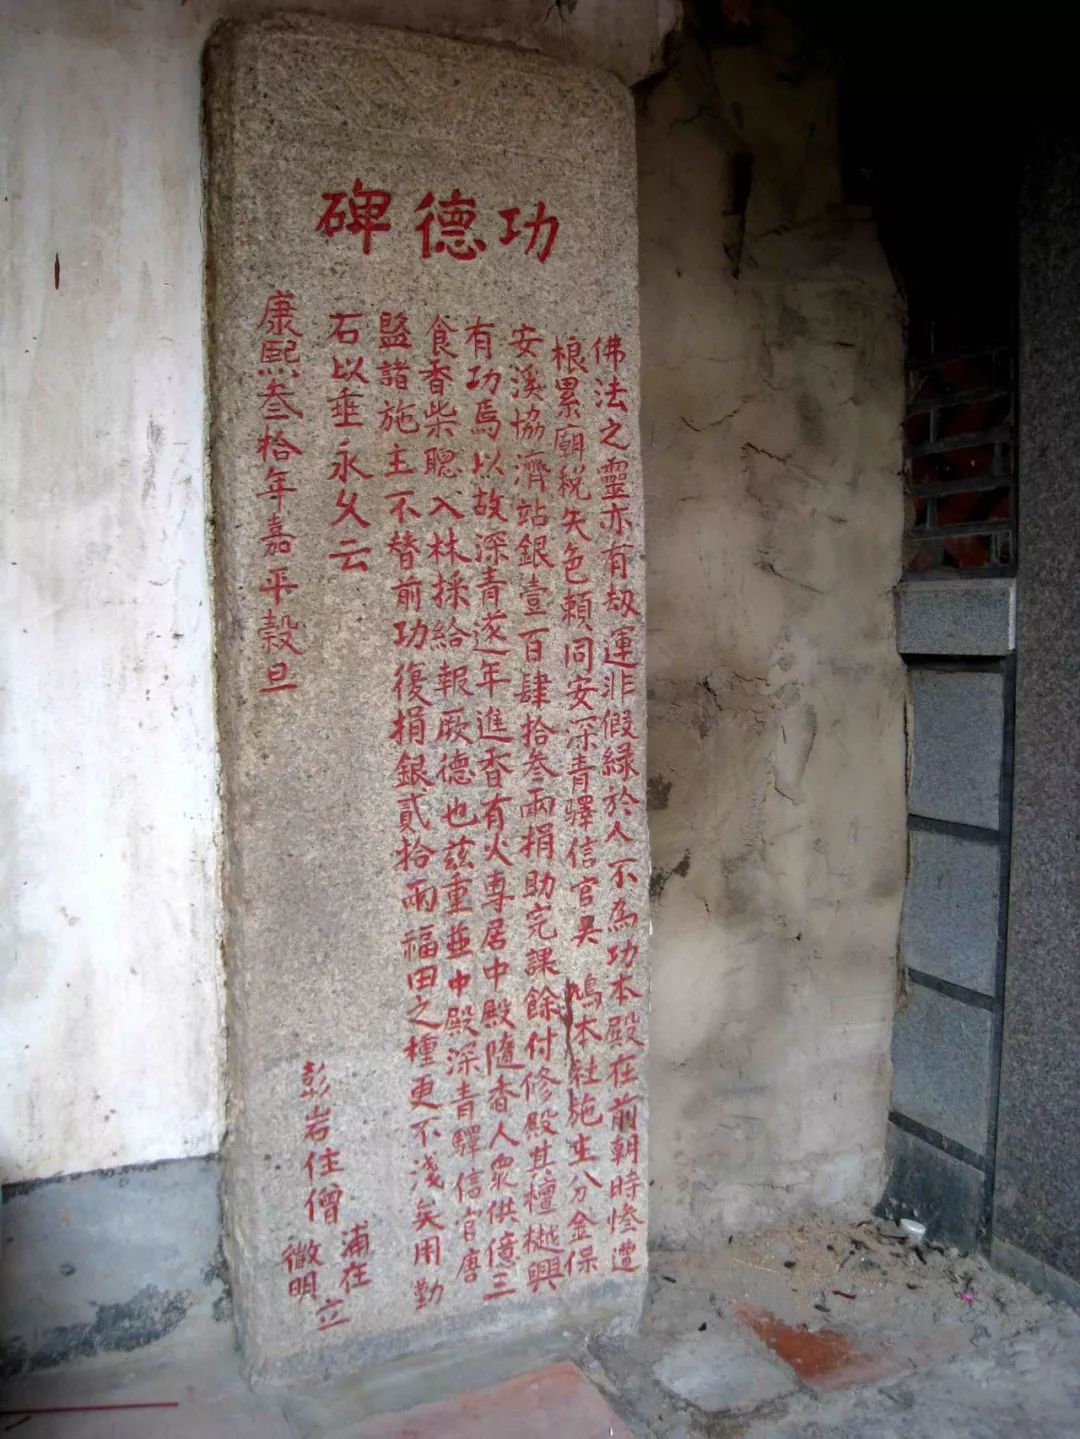 功德碑
佛法之靈亦有劫運非假緣於人不為功本殿在前朝時慘遭
根累廟稅失色賴同安深青驛信官吳 鳩本社施生分金保
安溪協濟站銀壹百肆拾叁兩捐助完課餘付修殿其檀樾興
有功焉以故深青遂年進香有火專居中殿隨香人衆供億三
食香柴聽入林採給報厥德也茲重並中殿深青驛信官唐
盬諸施主不替前功復捐銀貳拾兩福田之種更不淺矣用勤
石以垂永久云
康熙叁拾年嘉平榖旦
彭岩住僧
浦在
徹明
立